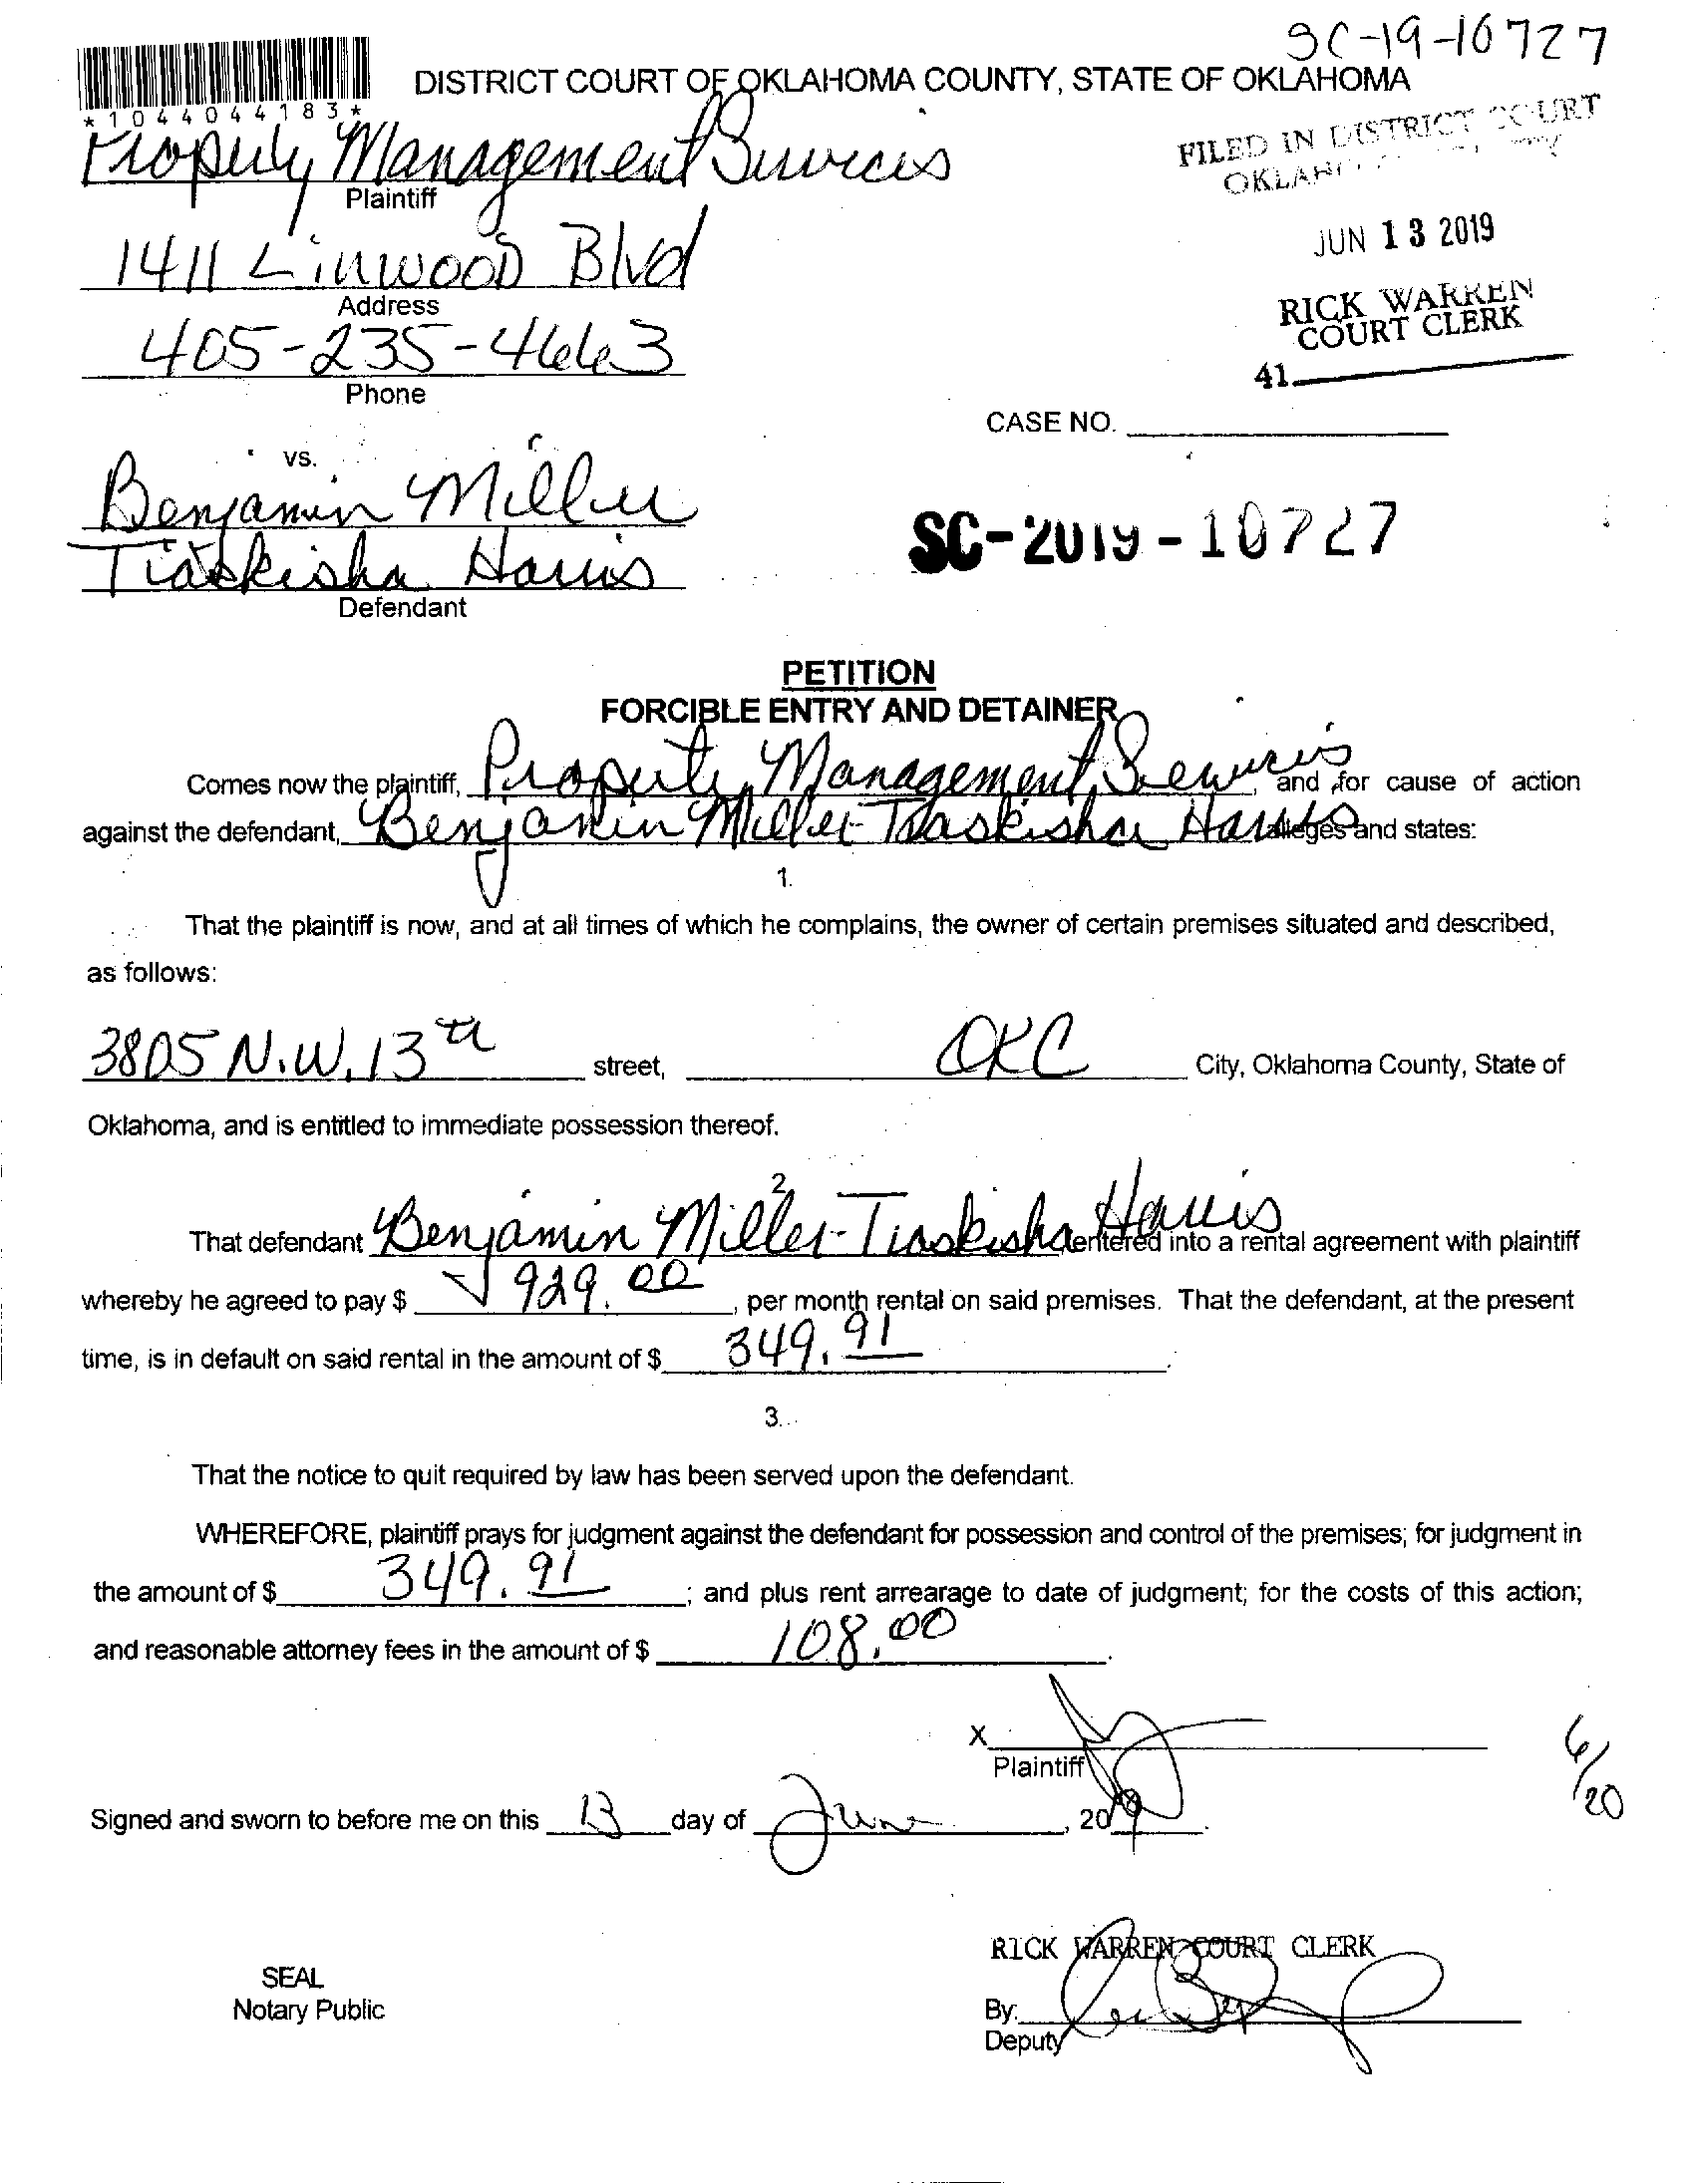 SC-19-10727
DISTRICT COURT OF OKLAHOMA COUNTY, STATE OF OKLAHOMA
*1044044183*
Property Management Services
Plaintiff
FILED IN DISTRICT COURT
1411 Linwood Blvd
Address
JUN 13 2019
RICK WARREN
COURT CLERK
405-235-4663
Phone
41
CASE NO.
vs.
Benjamin Miller
SC-2019-10727
Tiaskisha Harris
Defendant
PETITION
FORCIBLE ENTRY AND DETAINER
Comes now the plaintiff, Property Management Services, and for cause of action
against the defendant, Benjamin Miller-Tiaskisha Harris alleges and states:
1.
That the plaintiff is now, and at all times of which he complains, the owner of certain premises situated and described,
as follows:
3805 N.W. 13th street, OKC City, Oklahoma County, State of
Oklahoma, and is entitled to immediate possession thereof.
2.
That defendant Benjamin Miller-Tiaskisha Harris entered into a rental agreement with plaintiff
whereby he agreed to pay $ 929.00, per month rental on said premises. That the defendant, at the present
time, is in default on said rental in the amount of $ 349.91.
3.
That the notice to quit required by law has been served upon the defendant.
WHEREFORE, plaintiff prays for judgment against the defendant for possession and control of the premises; for judgment in
the amount of $ 349.91; and plus rent arrearage to date of judgment; for the costs of this action;
and reasonable attorney fees in the amount of $ 108.00.
X
Plaintiff
6/20
Signed and sworn to before me on this 13 day of June, 2019.
RICK WARREN COURT CLERK
SEAL
Notary Public
By:
Deputy